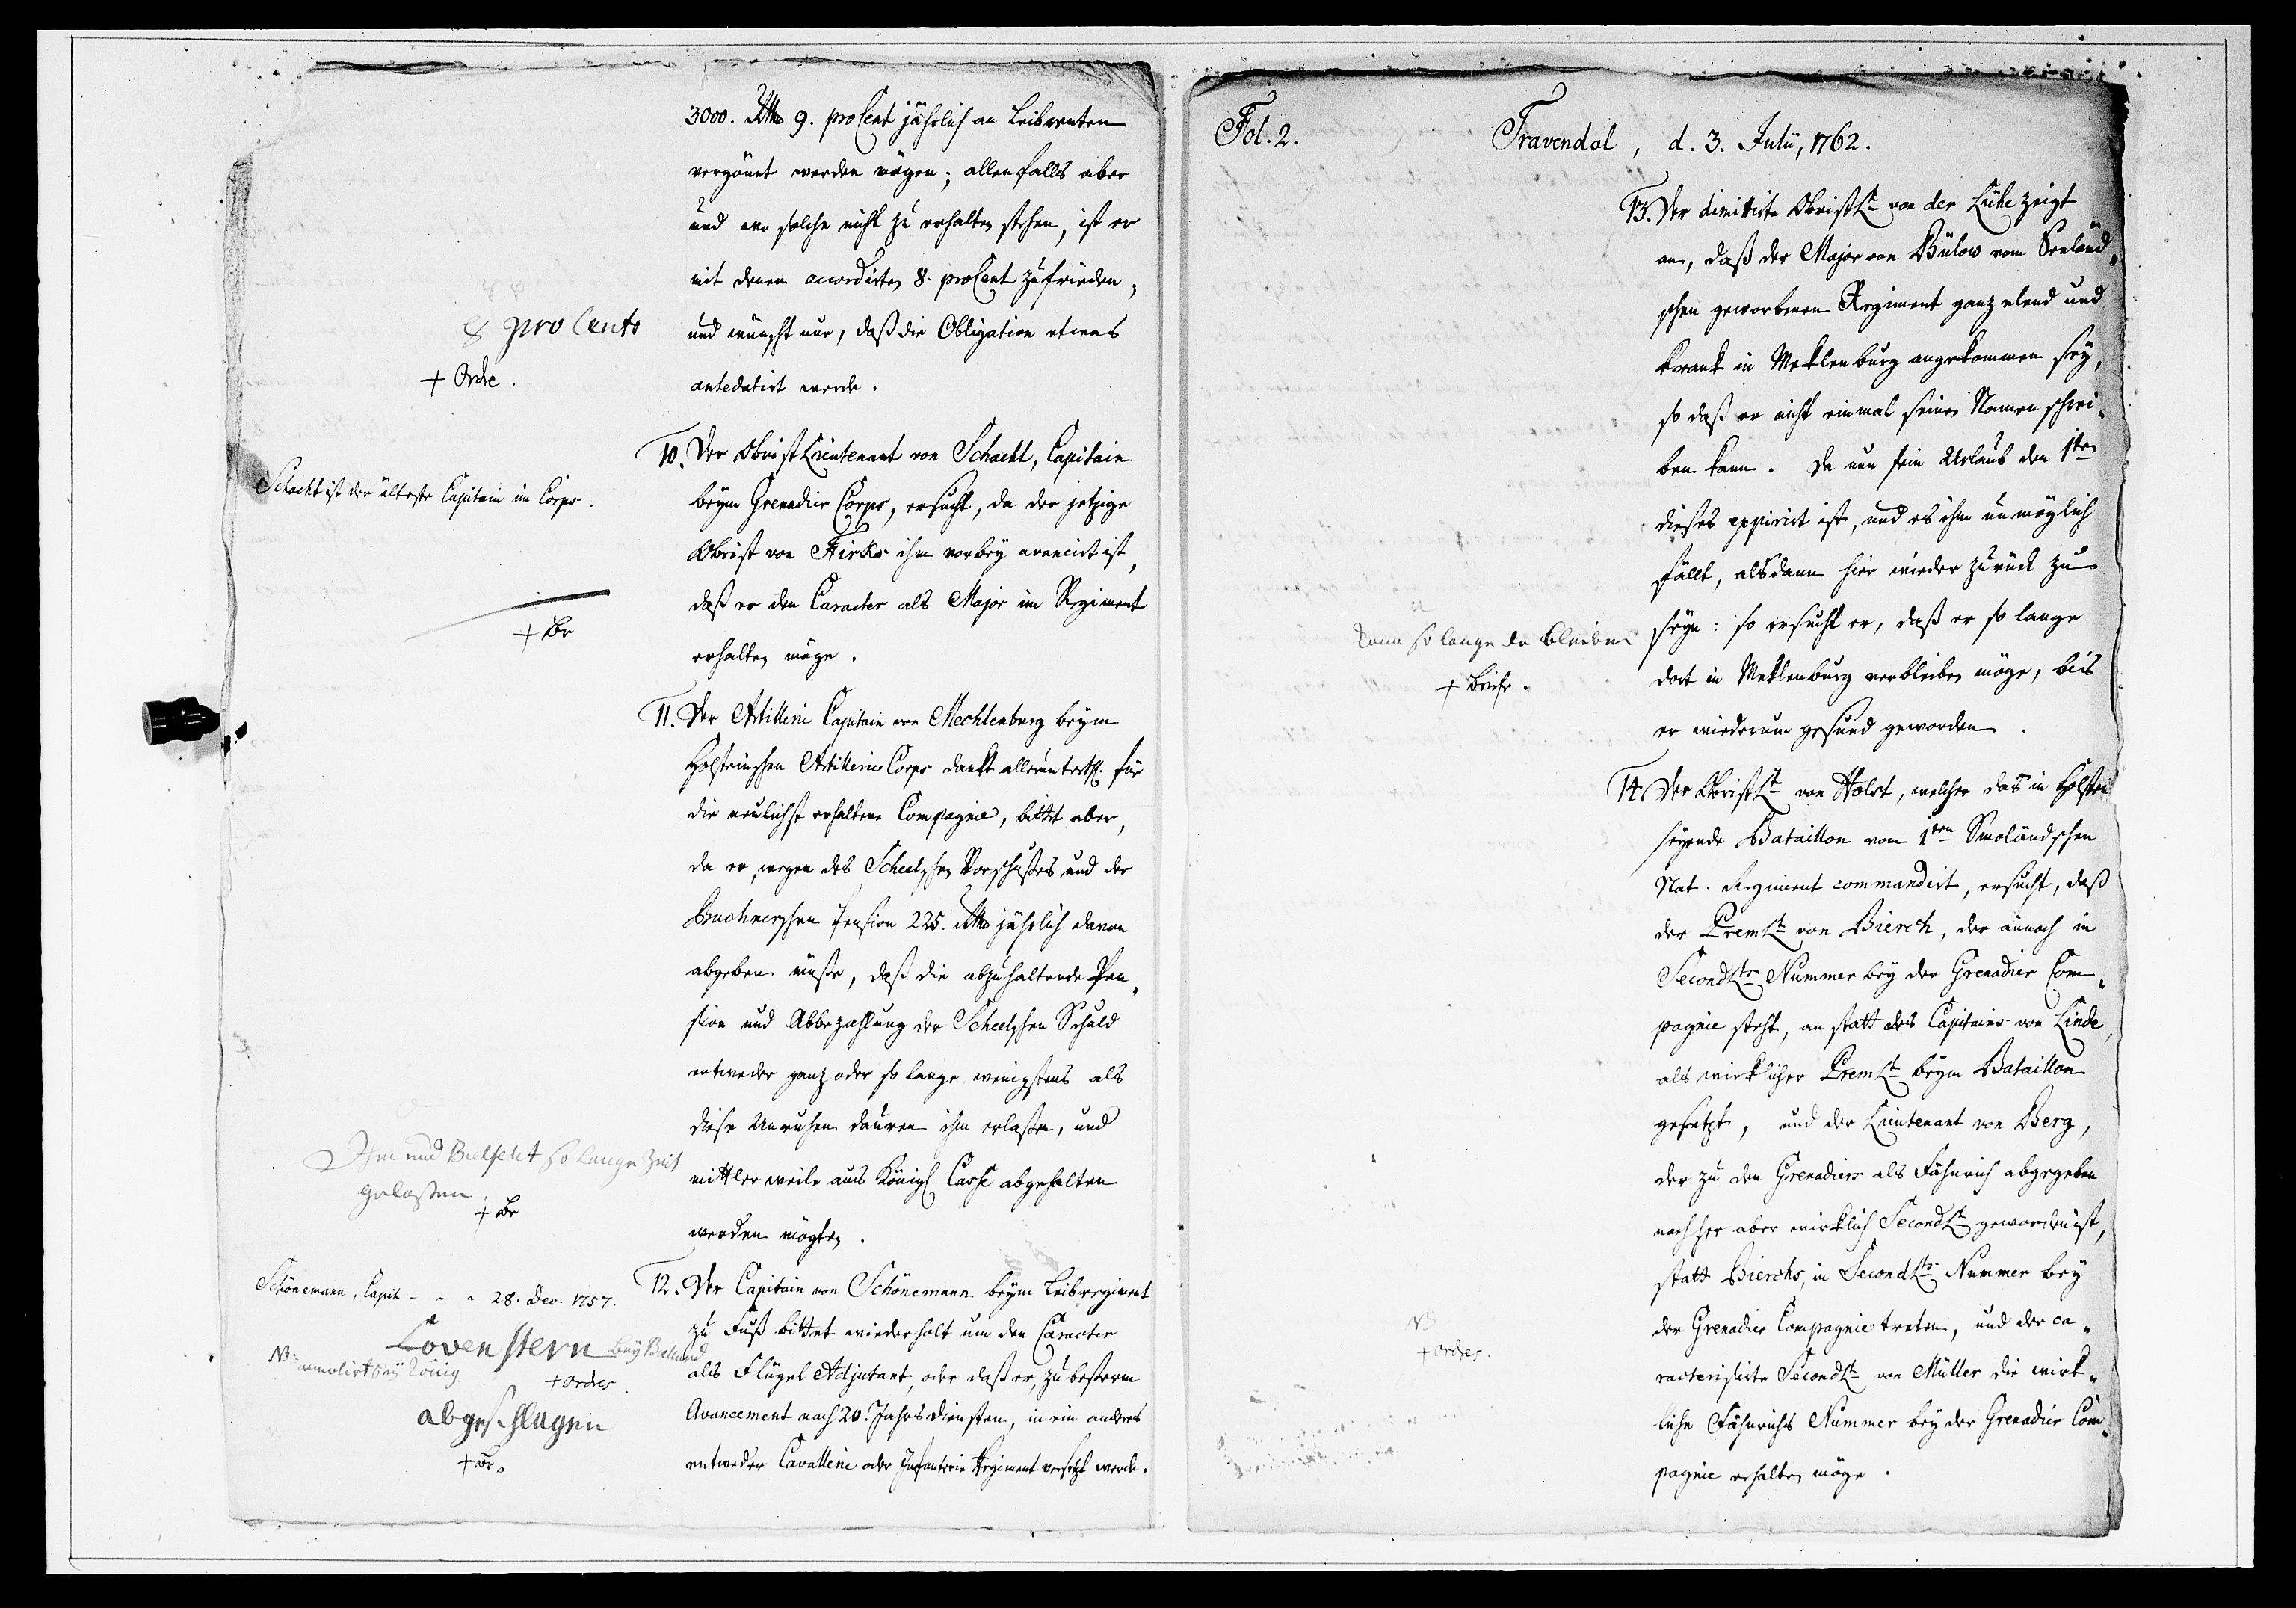 3000. Rthlr 9. proCent jährlich an Leibrenten
vergönnt werden mögen; allenfalls aber
und wo solche nicht zu erhalten stehen, ist er
mit denen accordirten 8. proCent zufrieden,
und wünscht nur, daß die Obligation etwas
antedatirt werde.
8 pro Cento
+ Ordre.
10. Der Obrist Lieutenant von Schacht, Capitain
beym Grenadier Corps, ersucht, da der jetzige
Obrist von Firks ihm vorbey avancirt ist,
daß er den Caracter als Major im Regiment
erhalten möge.
Schacht ist der älteste Capitain im Corps.
+ Br
11. Der Artillerie Capitain von Mechlenburg beym
Holsteinschen Artillerie Corps danckt allerunterth. für
die neulichst erhaltene Compagnie, bittet aber,
da er, wegen des Scheelschen Vorschußes und der
Buchnerschen Pension 225. Rthlr jährlich davon
abgeben müße, daß die abzuhaltende Pen¬
sion und Abbezahlung der Scheelschen Schuld
entweder ganz oder so lange wenigstens als
diese Unruhen dauren ihm erlaßen, und
mittlerweile aus Königl. Casse abgehalten
werden mögten.
Ihm und Bielfeldt so lange Zeit
gelaßen.
+ Br
12. Der Capitain von Schönemann beym Leibregiment
zu Fuß bittet wiederholt um den Caracter
als Flügel Adjutant, oder daß er, zu beßerm
Avancement nach 20. Jahrs Diensten, in ein anders
entweder Cavallerie oder Infanterie Regiment versetzt werde.
Schönemann, Capit - - - 28. Dec. 1757.
Lovenstern bey
NB:
+ Ordres.
abgeschlagen
+ Br.
Fol. 2.
Travendal, d. 3. Julii, 1762.
13. Der dimittirte ObristLt von der Lühe zeigt
an, daß der Major von Bülow vom Seeländ¬
schen geworbenen Regiment ganz elend und
krank in Meklenburg angekommen sey,
so daß er nicht einmal seinen Namen schrei¬
ben kann. Da nun sein Urlaub den 1ten
dieses expirirt ist, und es ihm unmöglich
fällt, alsdann hier wieder zurück zu
seyn: so ersucht er, daß er so lange
dort in Meklenburg verbleiben möge, bis
er wiederum gesund geworden.
kann so lange da bleiben
+ Briefe.
14. Der ObristLt von Holst, welcher das in Holstei
seyende Bataillon vom 1ten Smoländschen
Nat. Regiment commandirt, ersucht, daß
der PremLt von Bierch, der annoch in
SecondLts Nummer bey der Grenadier Com¬
pagnie steht, an statt des Capitains von Linde,
als wirklicher PremLt beym Bataillon
gesetzt, und der Lieutenant von Berg,
der zu den Grenadiers als Fähnrich abgegeben
nachher aber wirklich SecondLt geworden ist,
statt Bierchs, in SecondLts Nummer bey
der Grenadier Compagnie treten, und der ca¬
racterisirte SecondLt von Müller die wirk¬
liche Fähnrichs Nummer bey der Grenadier Com¬
pagnie erhalten möge.
NB
+ Ordres.